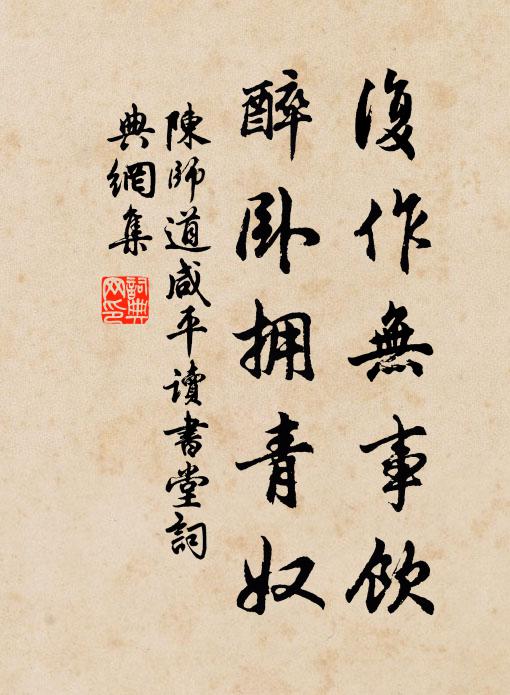 復作無事飲
醉卧拥青奴
陳師道咸平讀書堂詞
典網集
詞典
网印